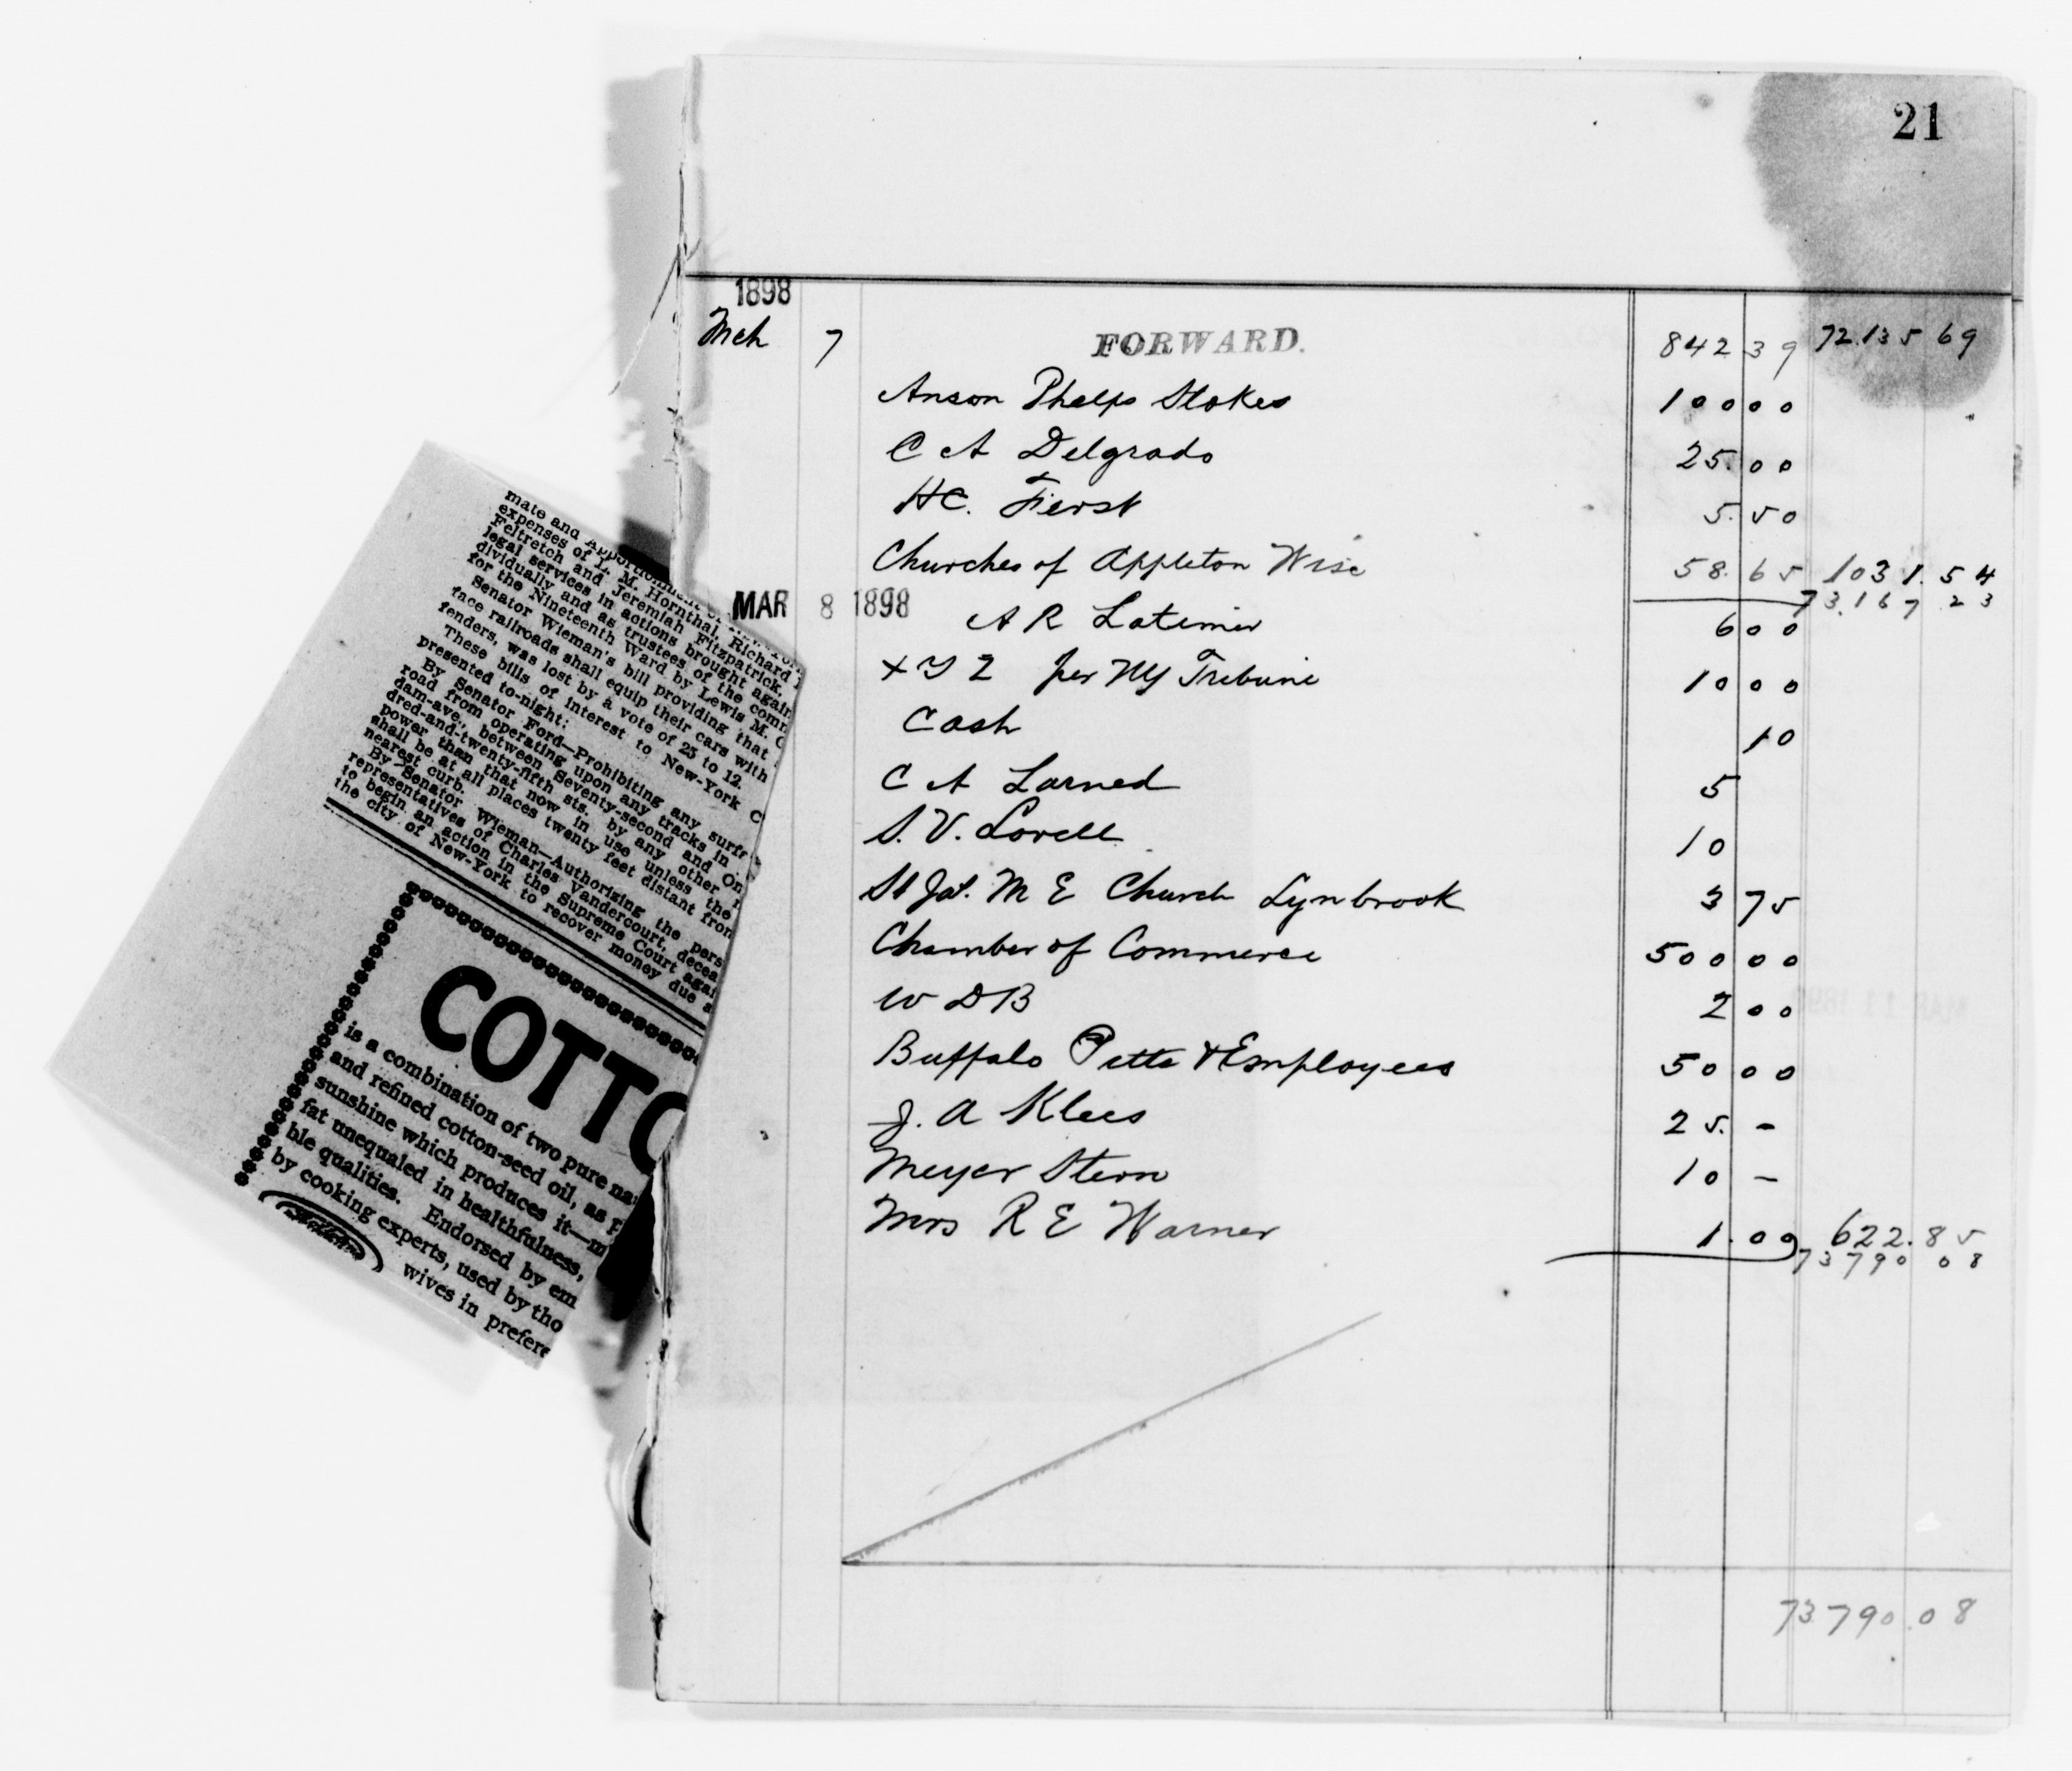 21
1898
Mch 7 FORWARD. 842 39 72.135 69
Anson Phelps Stokes 100 00
C A Delgrado 25. 00
HC. Fierst 5. 50
Churches of Appleton Wisc 58. 65 1031. 54
73.167 23
MAR 8 1898 A R Latimer 6 00
X Y Z per NY Tribune 10 00
Cash 10
C A Larned 5
S. V. Lovell 10
St Jas. M E Church Lynbrook 3 75
Chamber of Commerce 500 00
W D B 2 00
Buffalo Pitts & Employees 50 00
J. A Klees 25. –
Meyer Stern 10 –
Mrs R E Warner 1. 00 622. 85
73790 08
73.790.08
mate and Apportionment
expenses of L. M. Hornthal, Richard
Feltretch and Jeremiah Fitzpatrick,
legal services in actions brought again
dividually and as trustees of the comm
for the Nineteenth Ward by Lewis M. C
Senator Wieman's bill providing that
face railroads shall equip their cars with
fenders, was lost by a vote of 25 to 12.
These bills of interest to New-York C
presented to-night:
By Senator Ford—Prohibiting any surf
road from operating upon any tracks in
dam-ave., between Seventy-second and On
dred-and-twenty-fifth sts. by any other
power than that now in use unless the
shall be at all places twenty feet distant from
nearest curb.
By Senator Wieman—Authorizing the pers
representatives of Charles Vandercourt, decea
to begin an action in the Supreme Court agai
the city of New-York to recover money due
COTTO
is a combination of two pure na
and refined cotton-seed oil, as p
sunshine which produces it—m
fat unequaled in healthfulness,
ble qualities. Endorsed by em
by cooking experts, used by tho
wives in prefere